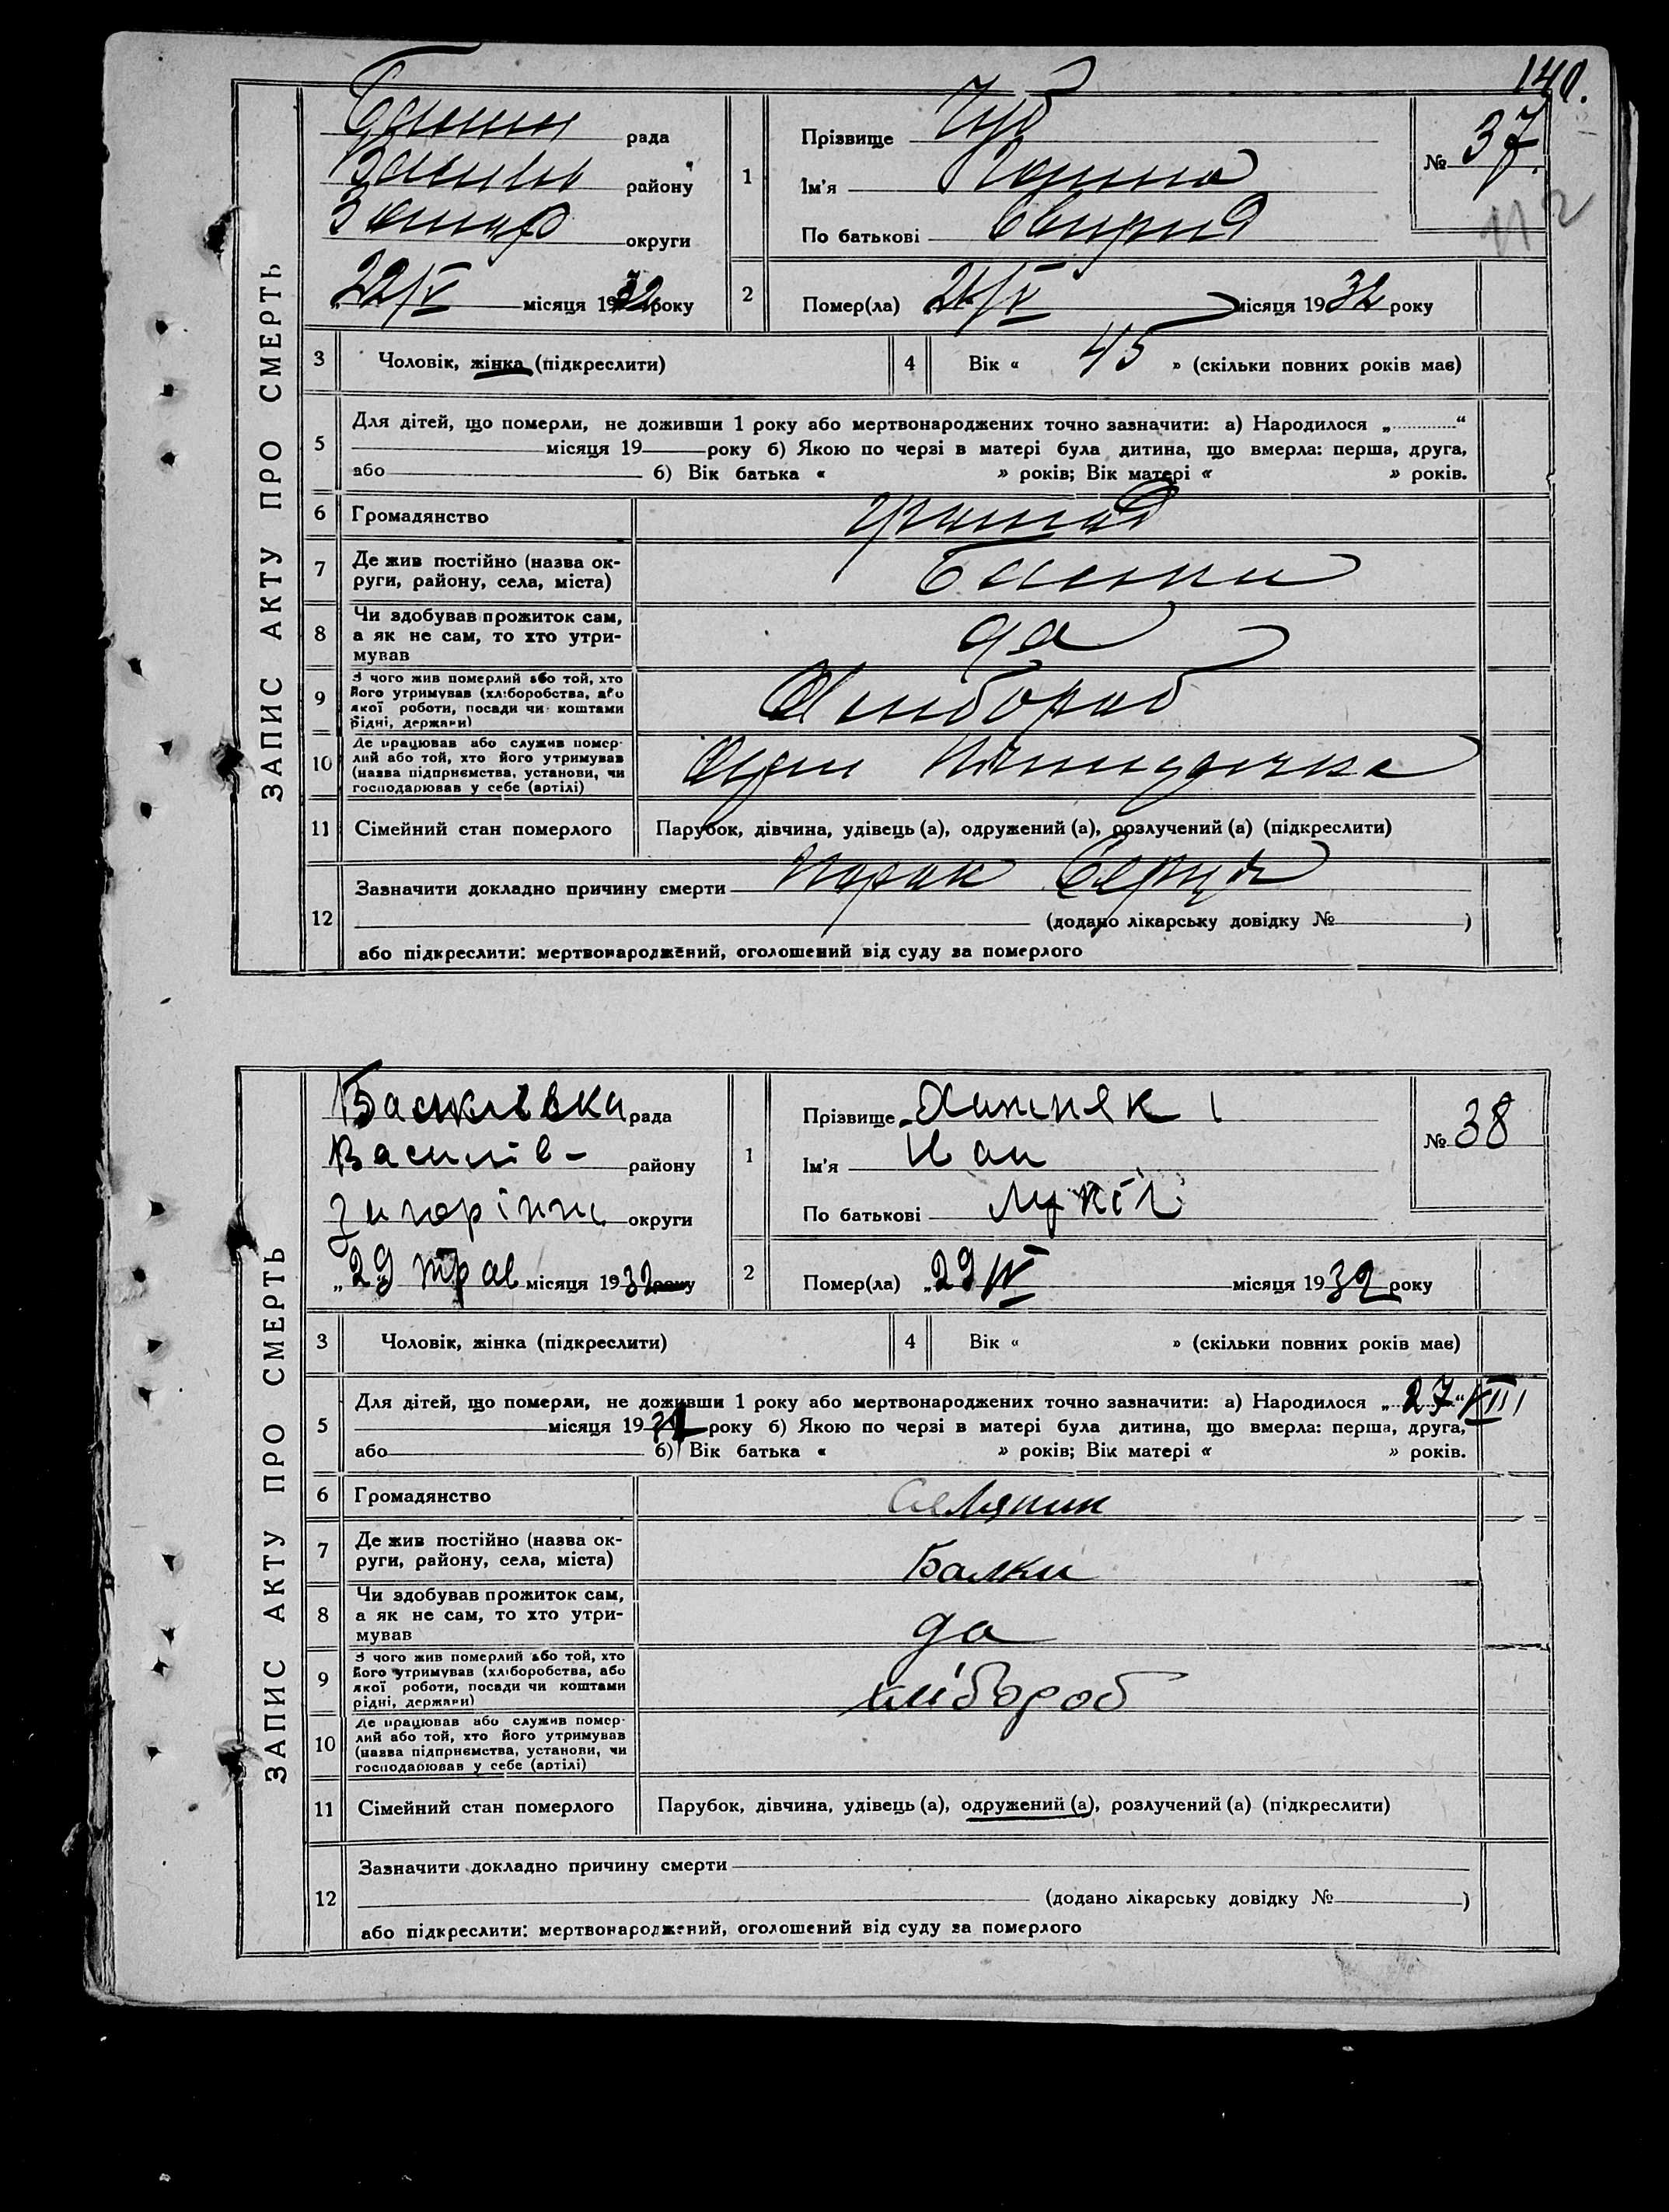 140.
ЗАПИС АКТУ ПРО СМЕРТЬ
рада
району
округи
22/V місяця 1932 року
1
Прізвище Чуб
Ім'я
По батькові Свирид
№ 37
112
2
Помер(ла) 21/V місяця 1932 року
3 Чоловік, жінка (підкреслити)
4 Вік « 45 » (скільки повних років має)
5 Для дітей, що померли, не доживши 1 року або мертвонароджених точно зазначити: а) Народилося „ “
місяця 19 року б) Якою по черзі в матері була дитина, що вмерла: перша, друга,
або б) Вік батька « » років; Вік матері « » років.
6 Громадянство
7 Де жив постійно (назва ок-
руги, району, села, міста)
Балки
8 Чи здобував прожиток сам,
а як не сам, то хто утри-
мував
да
9 З чого жив померлий або той, хто
його утримував (хліборобства, або
якої роботи, посади чи коштами
рідні, держави)
Хлибороб
10 Де працював або служив помер-
лий або той, хто його утримував
(назва підприємства, установи, чи
господарював у себе (артілі)
11 Сімейний стан померлого
Парубок, дівчина, удівець (а), одружений (а), розлучений (а) (підкреслити)
12 Зазначити докладно причину смерти Порок Серця
(додано лікарську довідку № )
або підкреслити: мертвонароджений, оголошений від суду за померлого
ЗАПИС АКТУ ПРО СМЕРТЬ
Балківська рада
Василів- району
округи
„29 трав місяця 1932 року
1
Прізвище Хижняк
Ім'я Иван
По батькові
№ 38
2
Помер(ла) „29 IV місяця 1932 року
3 Чоловік, жінка (підкреслити)
4 Вік « » (скільки повних років має)
5 Для дітей, що померли, не доживши 1 року або мертвонароджених точно зазначити: а) Народилося „27“ VIII
місяця 1931 року б) Якою по черзі в матері була дитина, що вмерла: перша, друга,
або б) Вік батька « » років; Вік матері « » років.
6 Громадянство
Селянин
7 Де жив постійно (назва ок-
руги, району, села, міста)
Балки
8 Чи здобував прожиток сам,
а як не сам, то хто утри-
мував
да
9 З чого жив померлий або той, хто
його утримував (хліборобства, або
якої роботи, посади чи коштами
рідні, держави)
хлібороб
10 Де працював або служив помер-
лий або той, хто його утримував
(назва підприємства, установи, чи
господарював у себе (артілі)
11 Сімейний стан померлого
Парубок, дівчина, удівець (а), одружений (а), розлучений (а) (підкреслити)
12 Зазначити докладно причину смерти
(додано лікарську довідку № )
або підкреслити: мертвонароджений, оголошений від суду за померлого